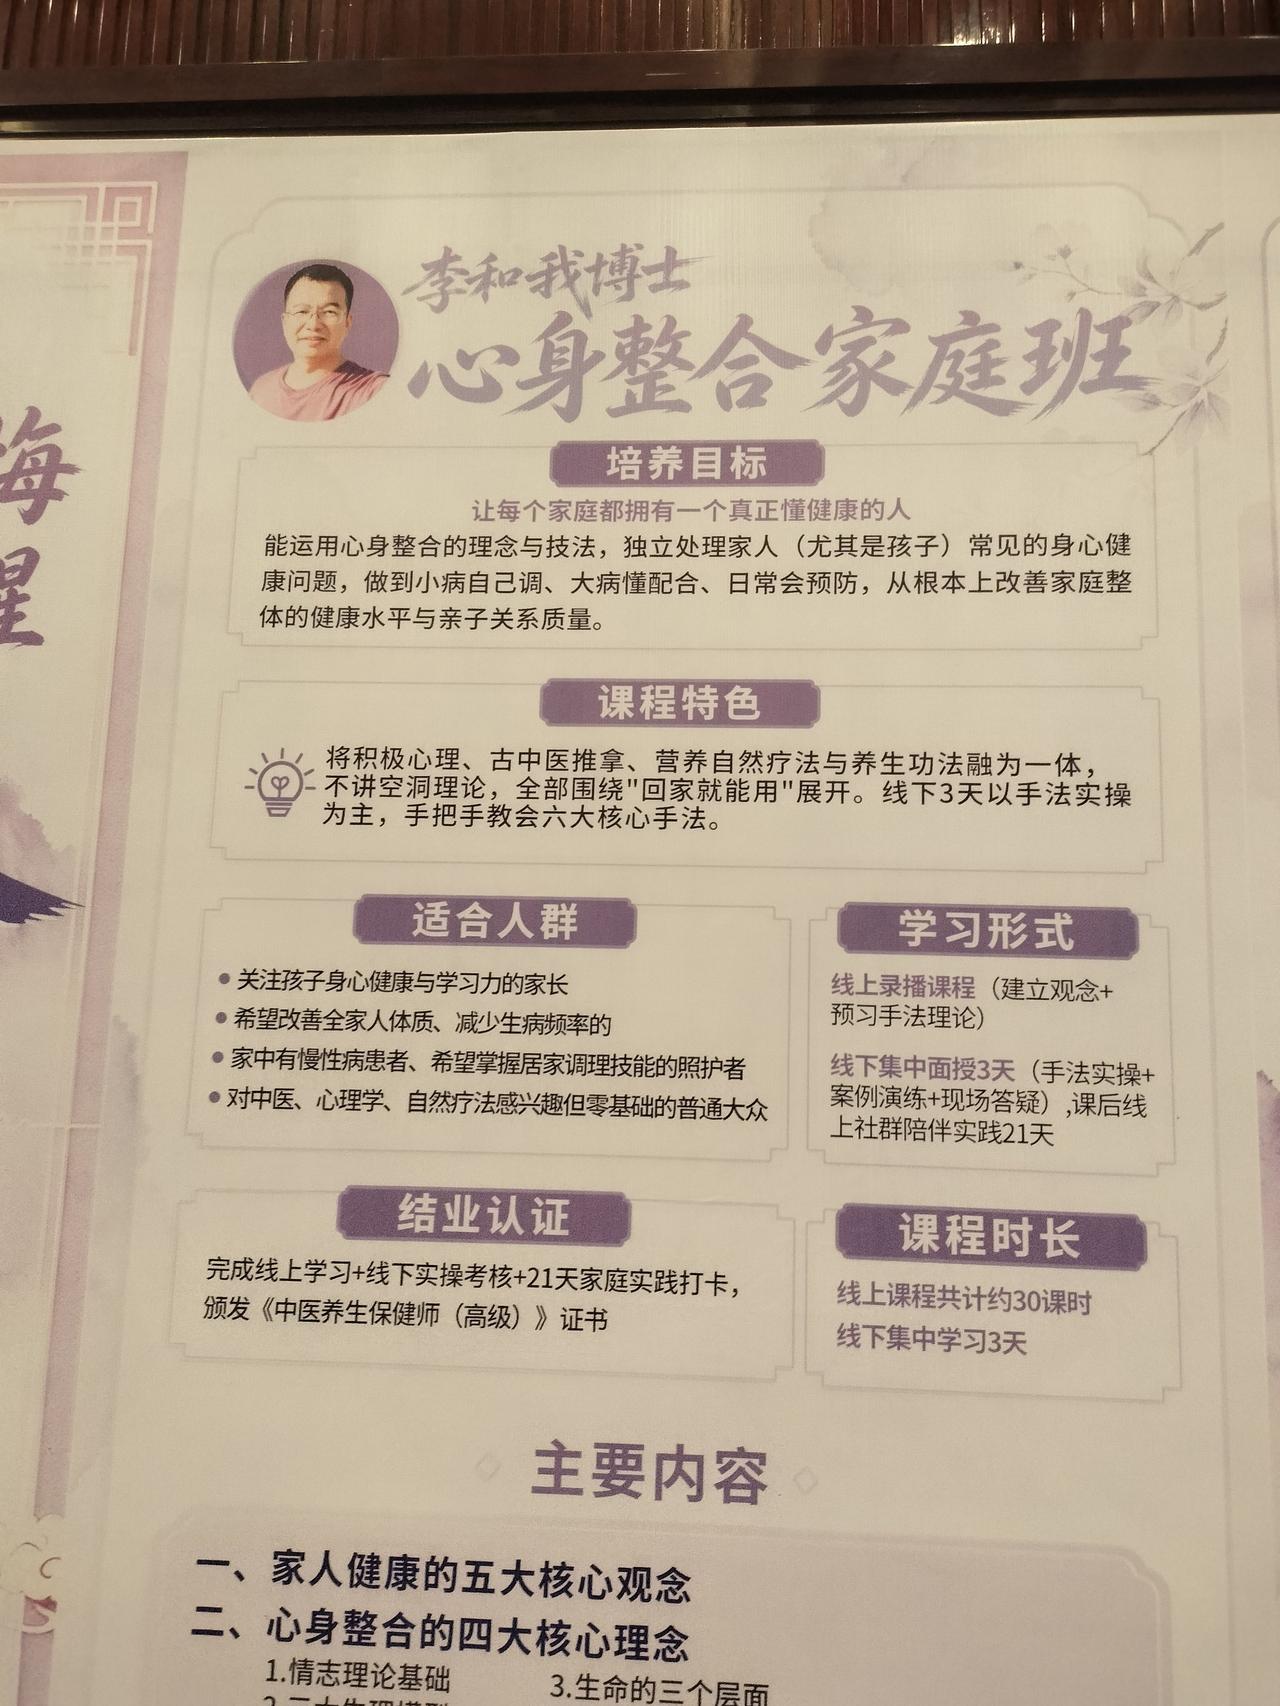 海
醒
李和我博士
心身整合家庭班
培养目标
让每个家庭都拥有一个真正懂健康的人
能运用心身整合的理念与技法，独立处理家人（尤其是孩子）常见的身心健
康问题，做到小病自己调、大病懂配合、日常会预防，从根本上改善家庭整
体的健康水平与亲子关系质量。
课程特色
将积极心理、古中医推拿、营养自然疗法与养生功法融为一体，
不讲空洞理论，全部围绕"回家就能用"展开。线下3天以手法实操
为主，手把手教会六大核心手法。
适合人群
●关注孩子身心健康与学习力的家长
●希望改善全家人体质、减少生病频率的
●家中有慢性病患者、希望掌握居家调理技能的照护者
●对中医、心理学、自然疗法感兴趣但零基础的普通大众
学习形式
线上录播课程（建立观念+
预习手法理论）
线下集中面授3天（手法实操+
案例演练+现场答疑）,课后线
上社群陪伴实践21天
结业认证
完成线上学习+线下实操考核+21天家庭实践打卡，
颁发《中医养生保健师（高级）》证书
课程时长
线上课程共计约30课时
线下集中学习3天
主要内容
一、家人健康的五大核心观念
二、心身整合的四大核心理念
1.情志理论基础
3.生命的三个层面